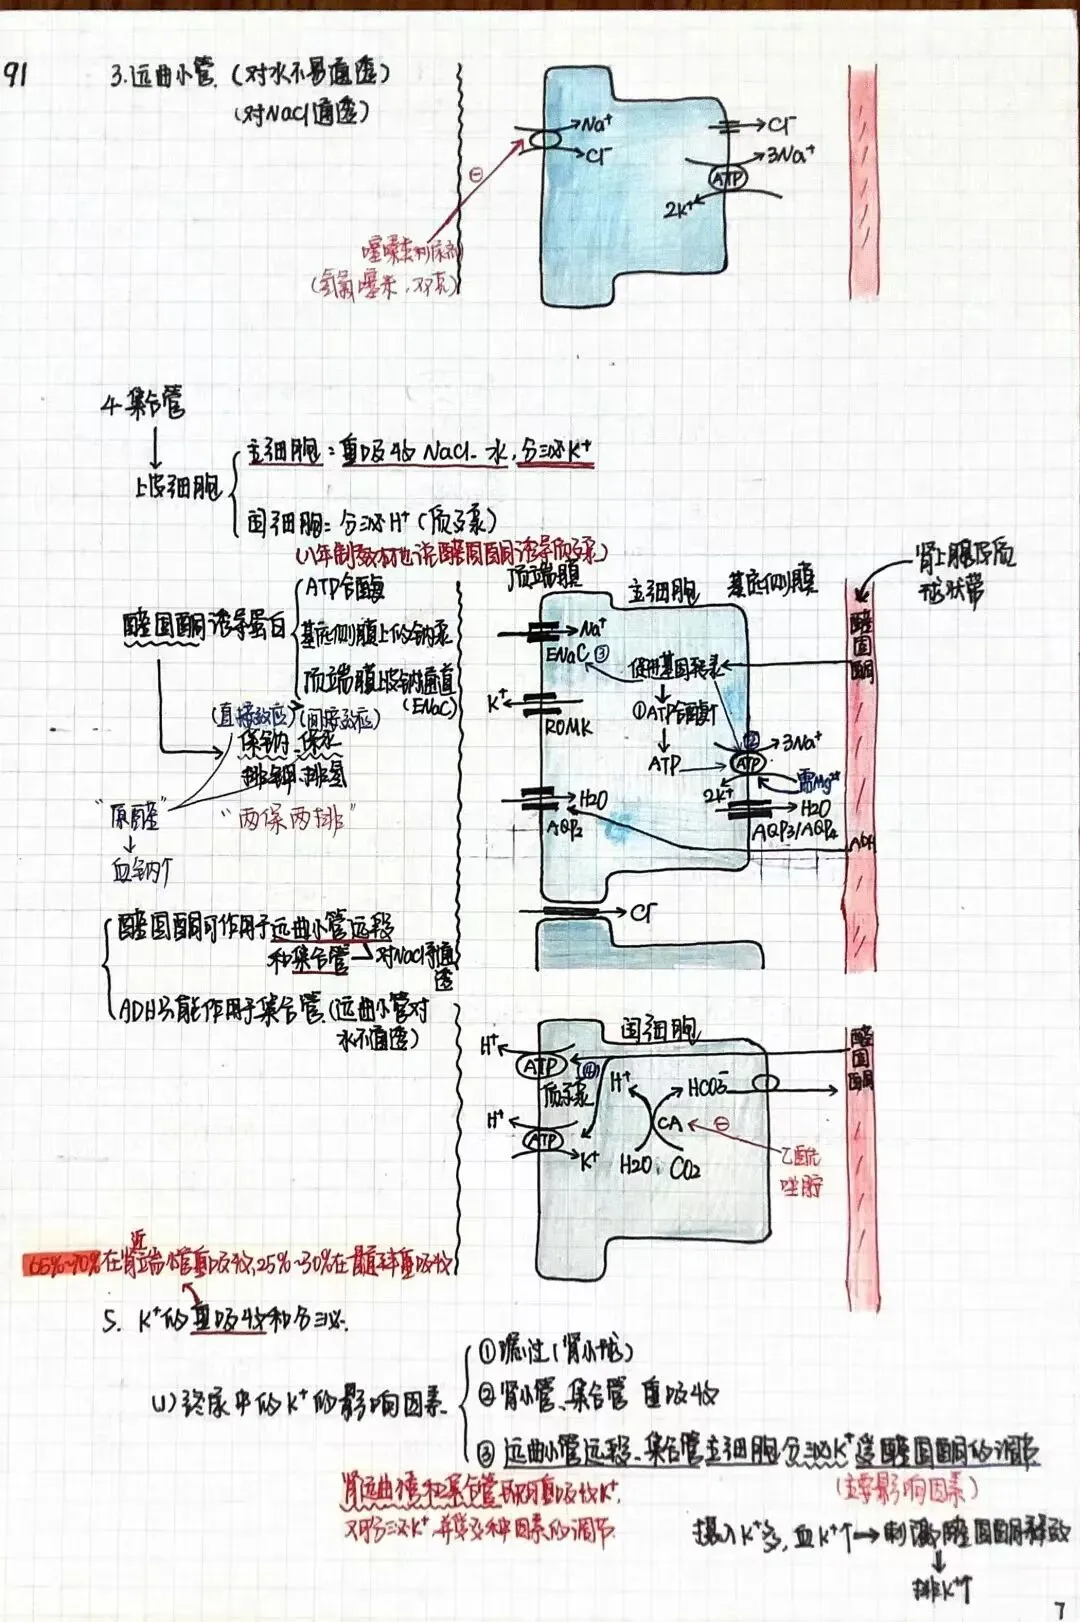 91
3.远曲小管.(对水不易通透)
(对NaCl通透)
Na⁺
Cl⁻
Cl⁻
3Na⁺
ATP
2K⁺
⊖
噻嗪类利尿剂
(氢氯噻嗪,双克)
4.集合管
上皮细胞
主细胞:重吸收NaCl、水,分泌K⁺
闰细胞:分泌H⁺(质子泵)
(八年制教材也说醛固酮诱导质子泵)
醛固酮诱导蛋白
ATP合酶
基底侧膜上的钠泵
顶端膜上皮钠通道
(ENaC)
(直接效应)(间接效应)
保钠、保水
排钾、排氢
"原醛"
"两保两排"
血钠↑
顶端膜
主细胞
基底侧膜
肾上腺皮质
球状带
醛固酮
Na⁺
ENaC ③
促进基因转录
K⁺
ROMK
①ATP合酶↑
ATP
②
ATP
3Na⁺
2K⁺
需Mg²⁺
H2O
AQP2
H2O
AQP3/AQP4
ADH
Cl⁻
醛固酮可作用于远曲小管远段
和集合管→对NaCl通透
ADH只能作用于集合管.(远曲小管对
水不通透)
闰细胞
醛固酮
H⁺
ATP
④
质子泵
H⁺
HCO₃⁻
H⁺
ATP
K⁺
CA
⊖
H2O
CO2
乙酰唑胺
近
65%~70%在肾端小管重吸收,25%~30%在髓袢重吸收
5. K⁺的重吸收和分泌.
(1)终尿中的K⁺的影响因素
①滤过(肾小球)
②肾小管、集合管 重吸收
③远曲小管远段、集合管主细胞分泌K⁺受醛固酮的调节
(主要影响因素)
肾远曲小管和集合管既可重吸收K⁺,
又可分泌K⁺,并受多种因素的调节
摄入K⁺多,血K⁺↑→刺激醛固酮释放
排K⁺↑
7